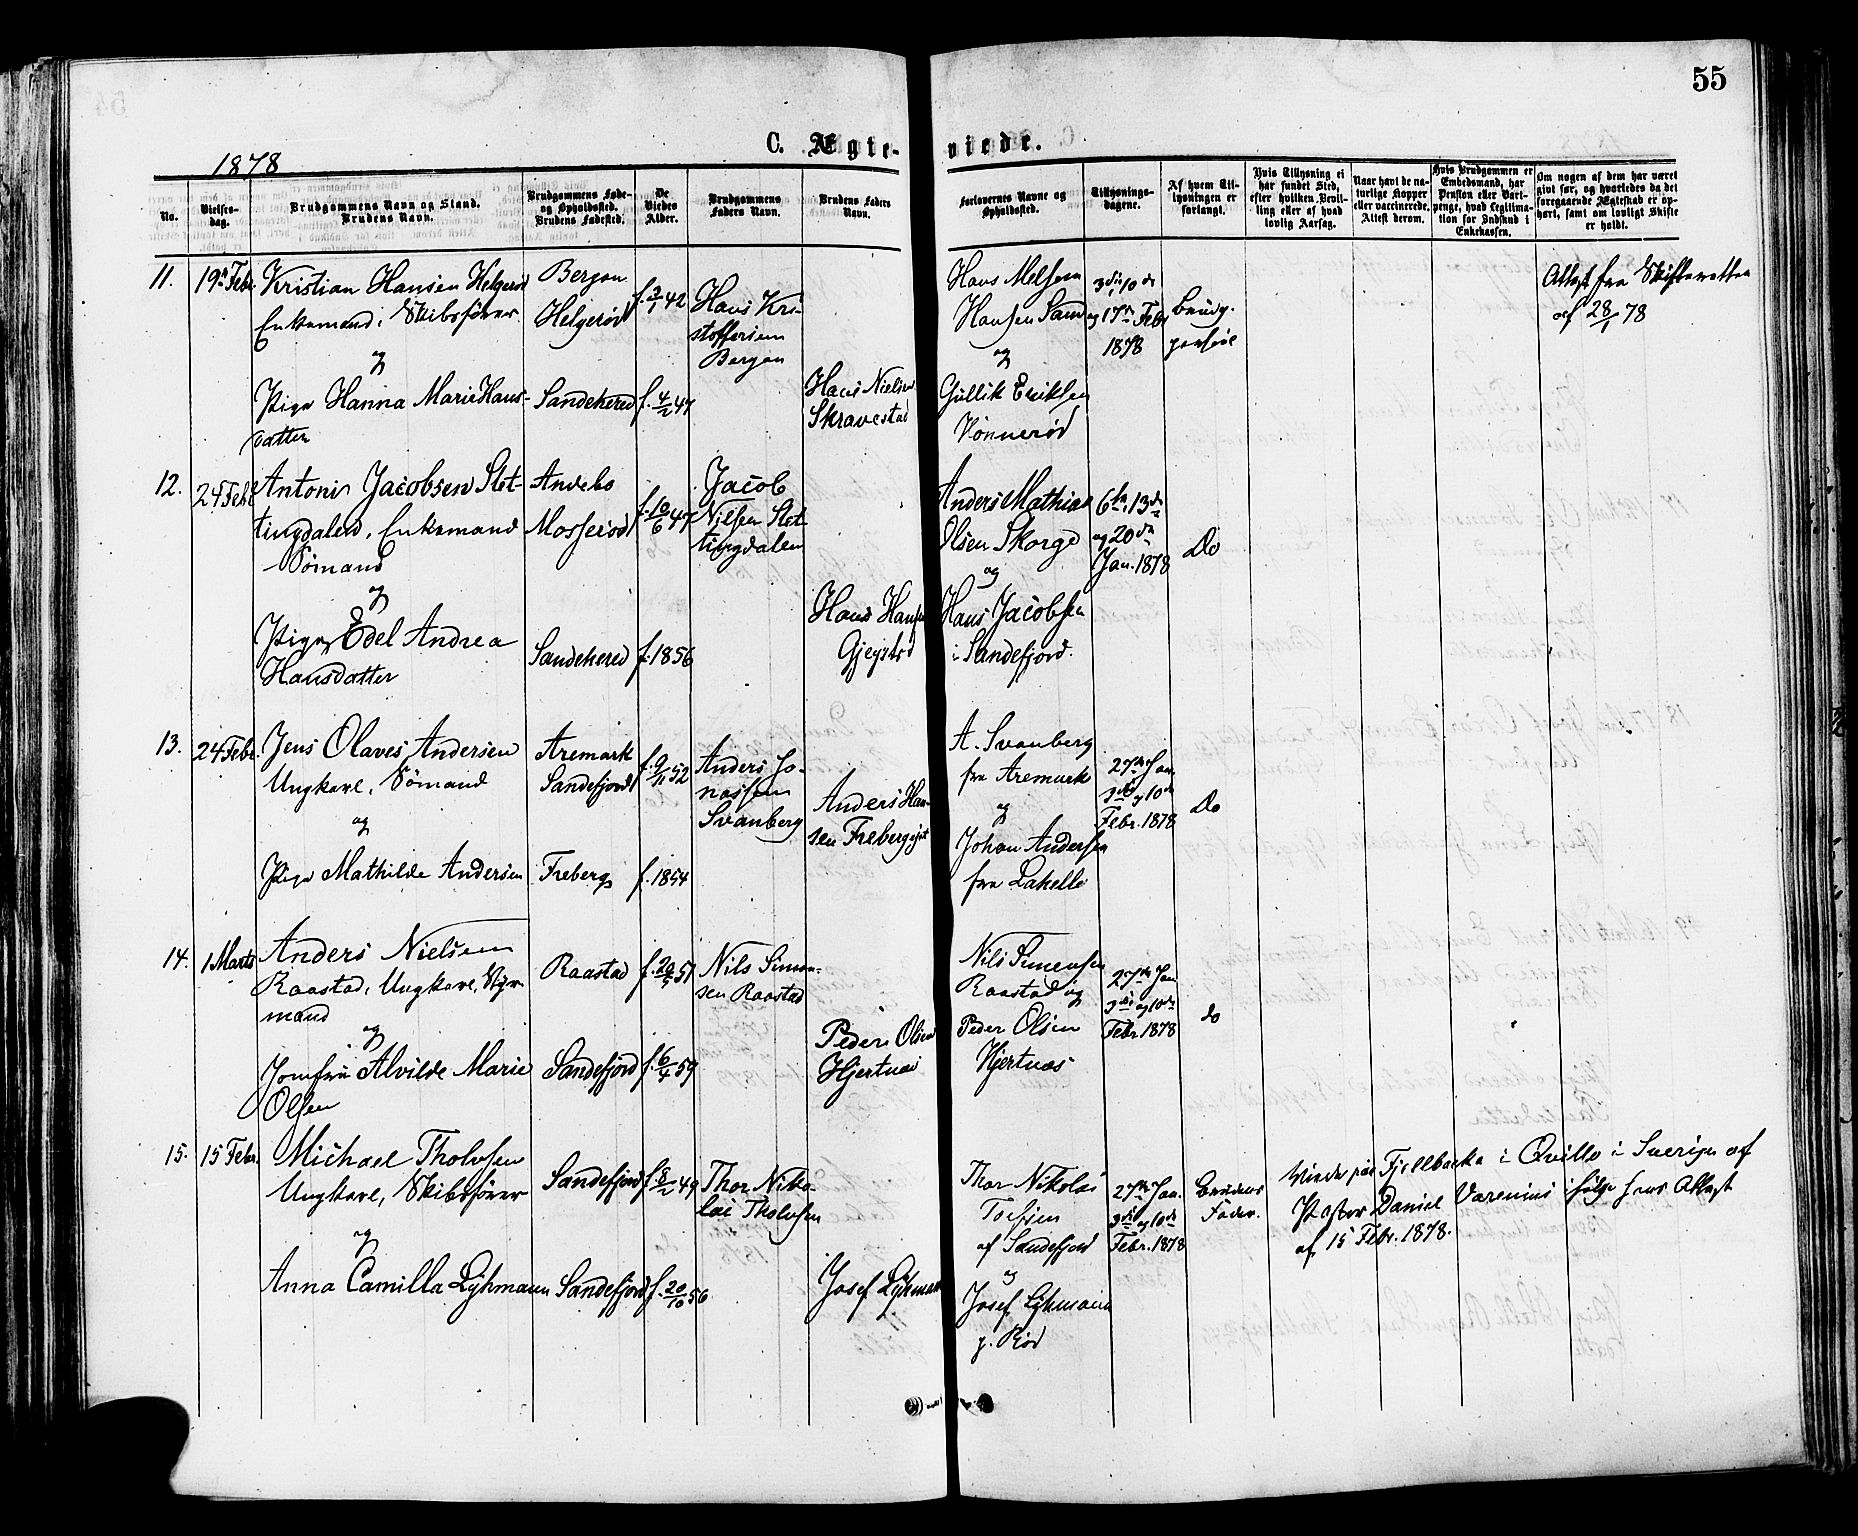 55
C. Ægte-viede.
1878
No.
Vielses-dag.
Brudgommens Navn og Stand.
Brudens Navn.
Brudgommens Føde-
og Opholdssted.
Brudens Fødested.
De
Viedes
Alder.
Brudgommens
Faders Navn.
Brudens Faders
Navn.
Forlovernes Navne og
Opholdssted.
Tillysnings-
dagene.
Af hvem Til-
lysningen er
forlangt.
Hvis Tillysning ei
har fundet Sted,
efter hvilken Bevil-
ling eller af hvad
lovlig Aarsag.
Naar havt de na-
turlige Kopper
eller vaccinerede.
Attest derom.
Hvis Brudgommen er
Embedsmand, har
Pension eller Vart-
penge, hvad Legitima-
tion for Indskud i
Enkekassen.
Om nogen af dem har været
givt før, og hvorledes da det
foregaaende Ægteskab er op-
hørt, samt om lovligt Skifte
er holdt.
11.
19de Febr.
Kristian Hansen Helgerød
Enkemand, Skibsfører
og
Pige Hanna Marie Hans-
datter
Bergan
Helgerød
Sandeherred
f. 3/1 42
f. 4/2 47
Hans Kri-
stoffersen
Bergan
Hans Nielsen
Skravestad
Hans
Hansen
og
Gullik Eriksen
Vønnerød
3die, 10de
og 17de Febr
1878
Brudg.
Attest fra Skifteretten
af 28/1 78
12.
24 Febr
Anton Jacobsen Slet-
tingdalen, Enkemand
Sømand
og
Pige Edel Andrea
Hansdatter
Andebo
Mosserød
Sandeherred
f. 10/6 47
f. 1856
Jacob
Nielsen Slet-
tingdalen
Hans Hansen
Anders Mathias
Olsen Skorge
og
Hans Jacobsen
i Sandefjord.
6te, 13de
og 20de
Jan. 1878
Do
13.
24 Febr.
Jens Olaves Andersen
Ungkarl, Sømand
og
Pige Mathilde Andersen
Aremark
Sandefjord
Freberg
f. 9/11 52
f. 1854
Anders Jo-
nassen
Svanberg
Anders Han-
sen Frebergejet
A. Svanberg
fra Aremark
og
Johan Andersen
fra
27de Jan.
3die og 10de
Febr. 1878
Do
14.
1 Marts
Anders Nielsen
Raastad, Ungkarl, Styr-
mand
og
Jomfru Alvilde Marie
Olsen
Raastad
Sandefjord
f. 51
f. 6/4 59
Nils Simon-
sen Raastad
Peder Olsen
Hjertnæs
Nils Simensen
Raastad og
Peder Olsen
Hjertnæs
27de Jan
3die og 10de
Febr. 1878
do
15.
15 Febr.
Michael Tholvsen
Ungkarl, Skibsfører
og
Anna Camilla Lÿhmann
Sandefjord
Sandefjord
f. 8/2 49
f. 20/10 56
Thor Niko-
lai Tholvsen
Josef Lÿhmann
Thor Nikolai
af Sandefjord
og
Josef Lÿhmann
p. Rød
27de Jan.
3die og 10de
Febr. 1878
Brudens
Fader.
Viede paa Fjellbacka i Qville i Sverige af
Pastor Daniel Varenius ifølge hans Attest
af 15 Febr. 1878.